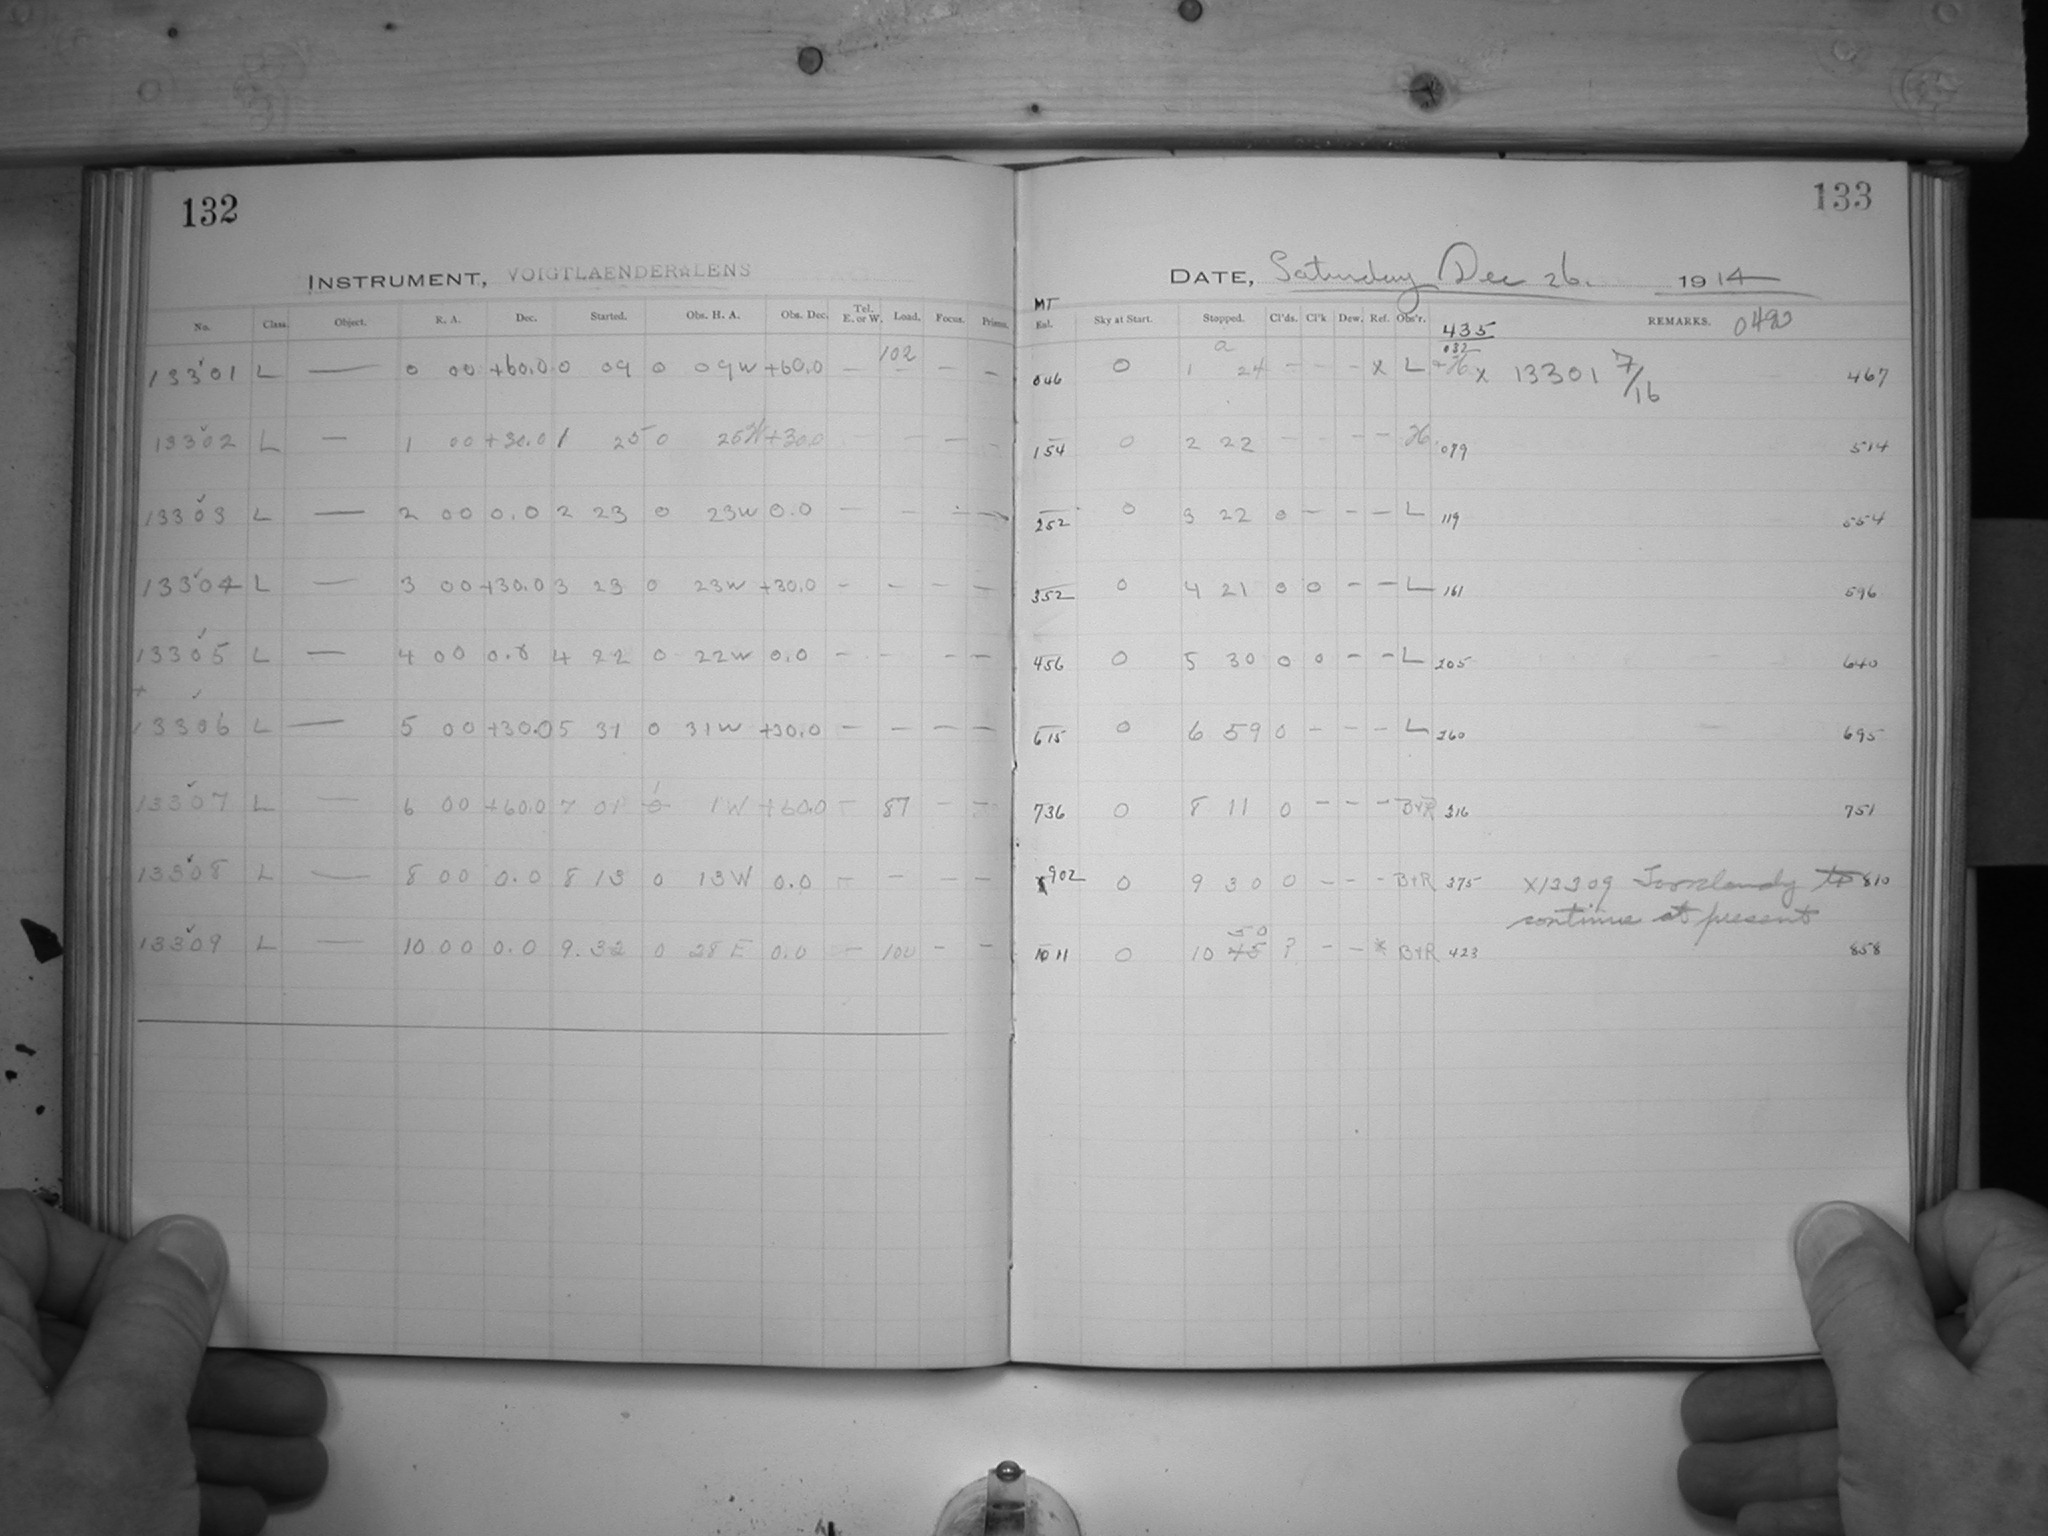 132
133
INSTRUMENT, VOIGTLAENDER LENS
DATE, Saturday Dec 26. 1914
No. Class. Object. R. A. Dec. Started. Obs. H. A. Obs. Dec. Tel. E. or W. Load. Focus. Prisms.
MT
Exl. Sky at Start. Stopped. Cl'ds. Cl'k Dew. Ref. Obs'r. 435 REMARKS. 0490
13301 L — 0 00 +60.0 0 09 0 09W +60.0 — 102 — — —
046 0 1 a 24 - - - x L +H 032 x 13301 7/16 467
13302 L — 1 00 +30.0 1 25 0 25W +30.0
154 0 2 22 - - - - H. 079 514
13303 L — 2 00 0.0 2 23 0 23W 0.0 — — — —
252 0 3 22 0 - - - L 119 554
13304 L — 3 00 +30.0 3 23 0 23W +30.0 - - - -
352 0 4 21 0 0 - - L 161 596
13305 L — 4 00 0.0 4 22 0 22W 0.0 - - - -
456 0 5 30 0 0 - - L 205 640
13306 L — 5 00 +30.0 5 31 0 31W +30.0 - - - -
615 0 6 59 0 - - - L 260 695
13307 L — 6 00 +60.0 7 01 1 1W +60.0 - 87 - -
736 0 8 11 0 - - - B+R 316 751
13308 L — 8 00 0.0 8 13 0 13W 0.0 - - - -
902 0 9 30 0 - - - B+R 375 X13309 Too cloudy to 810
continue at present
13309 L — 10 00 0.0 9.32 0 28 E 0.0 — 100 - -
1011 0 10 45 50 ? - - * B+R 423 858